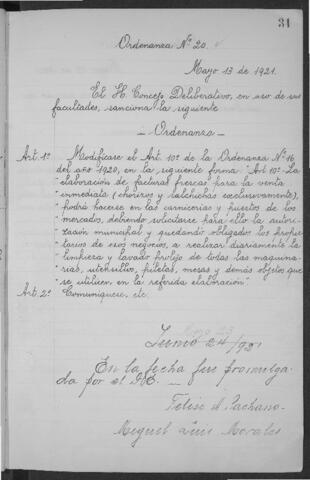 31
Ordenanza Nº 20.
Mayo 13 de 1921.
El H. Concejo Deliberativo, en uso de sus
facultades, sanciona la siguiente
- Ordenanza -
Art. 1º Modifícase el Art. 10º de la Ordenanza Nº 16
del año 1920, en la siguiente forma "Art 10º La
"elaboración de facturas frescas para la venta
"inmediata (chorizos y salchichas exclusivamente),
"podrá hacerse en las carnicerías y puestos de los
"mercados, debiendo solicitarse para ello la autori-
"zación municipal y quedando obligados los propie-
"tarios de esos negocios, a realizar diariamente la
"limpieza y lavado prolijo de todas las maquina-
"rias, utensillos, piletas, mesas y demás objetos que
"se utilicen en la referida elaboración."
Art. 2º Comuníquese, etc.
Mayo 23
Junio 24/921
En la fecha fue promulga-
da por el D.E. —
Felise A Pachano
Miguel Luis Morales